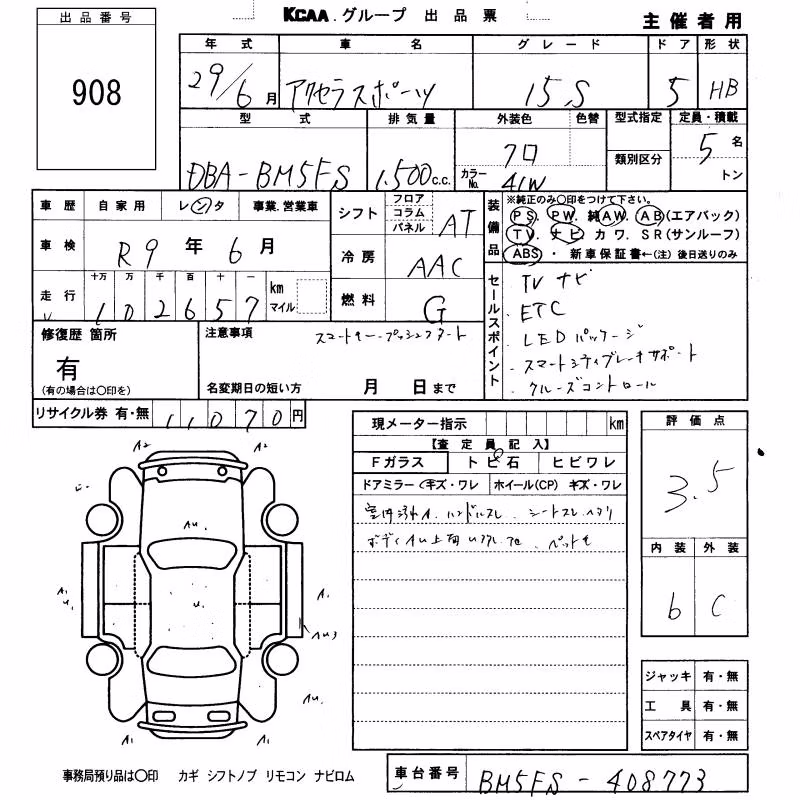 出品番号
908
KCAA.グループ 出品票
主催者用
年式 車名 グレード ドア 形状
29/6月 アクセラスポーツ 15S 5 HB
型式 排気量 外装色 色替 型式指定 定員・積載
類別区分
DBA-BM5FS 1,500c.c. クロ 5名
カラーNo. 41W トン
車歴 自家用 レンタ 事業.営業車
シフト フロア コラム パネル AT
装備品
※純正のみ〇印をつけて下さい。
PS. PW. 純AW. AB(エアバック)
TV. ナビ カワ. SR(サンルーフ)
ABS・新車保証書←(注) 後日送りのみ
車検 R9年6月
冷房 AAC
走行 十万 万 千 百 十 一 km マイル
102657
燃料 G
セールスポイント
TVナビ
ETC
LEDパッケージ
スマートシティブレーキサポート
クルーズコントロール
修復歴 箇所
有
(有の場合は〇印を)
注意事項 スマートキー・プッシュスタート
名変期日の短い方 月 日まで
リサイクル券 有・無 11070円
現メーター指示 km
【査定員記入】
Fガラス トビ石 ヒビワレ
ドアミラー(キズ・ワレ ホイール(CP) キズ・ワレ
室内汚れ. ハンドルスレ. シートスレ
評価点
3.5
内装 外装
b C
A2 A2
AU.
A1 U. U. A1
AU3
AU.
A1 A1
ジャッキ 有・無
工具 有・無
スペアタイヤ 有・無
事務局預り品は〇印 カギ シフトノブ リモコン ナビロム
車台番号 BM5FS-408773